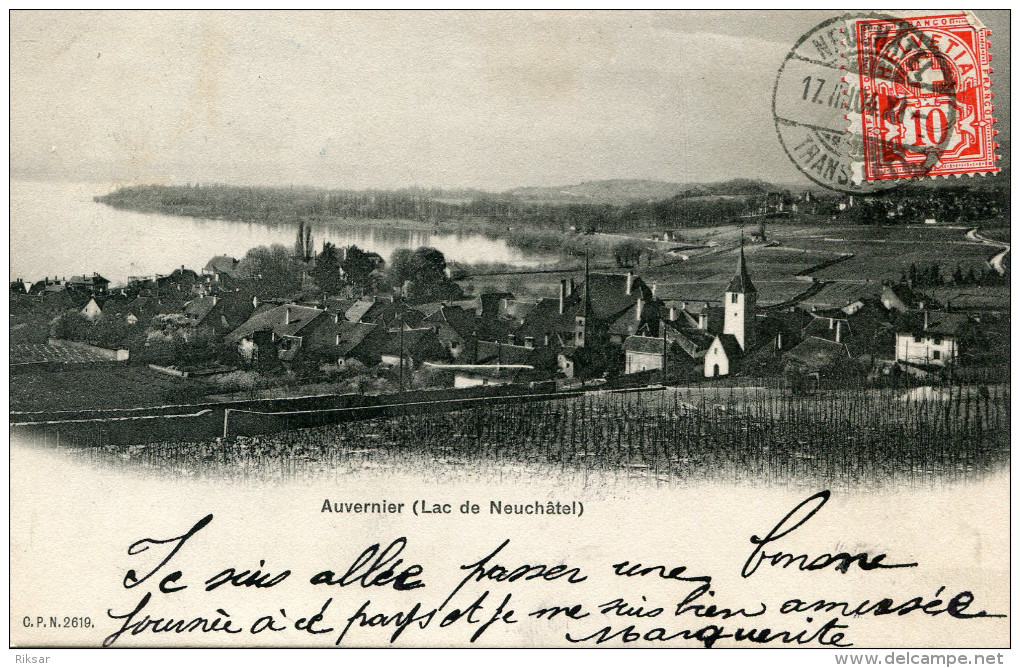 NEUCHATEL
17.III.04.XI
TRANS
FRANCO
HELVETIA
FRANCO
10
Auvernier (Lac de Neuchâtel)
Je suis allée passer une bonsne
C.P.N. 2619.
journèe à cé pays et je me suis bien amusée
Marguerite
Riksar
www.delcampe.net